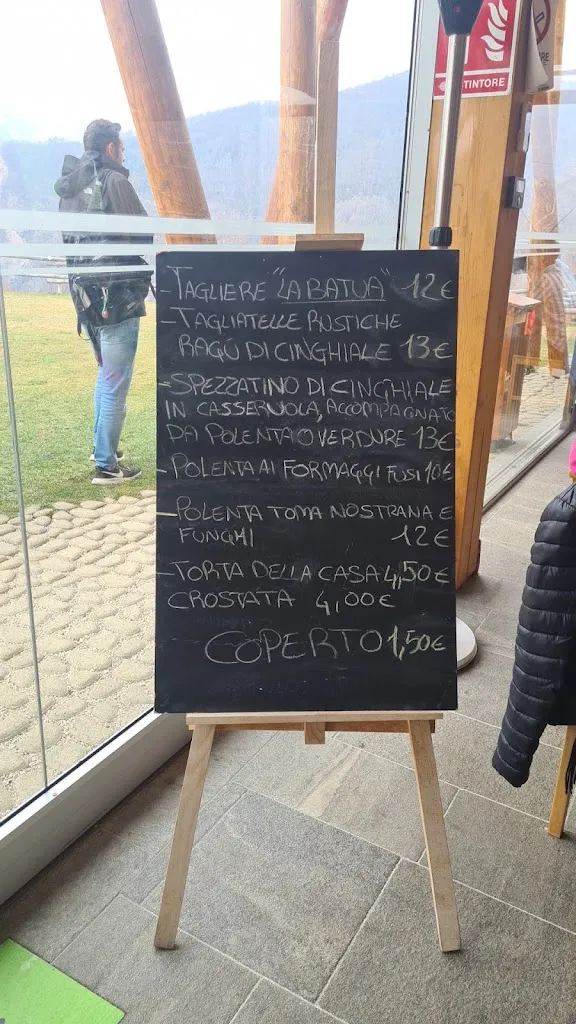 TINTORE
RE
- TAGLIERE "LA BATUA" 12€
- TAGLIATELLE RUSTICHE
RAGÚ DI CINGHIALE 13€
- SPEZZATINO DI CINGHIALE
IN CASSERUOLA, ACCOMPAGNATO
DA POLENTA O VERDURE 13€
- POLENTA AI FORMAGGI FUSI 10€
- POLENTA TOMA NOSTRANA E
FUNGHI 12€
- TORTA DELLA CASA 4,50€
CROSTATA 4,00€
COPERTO 1,50€